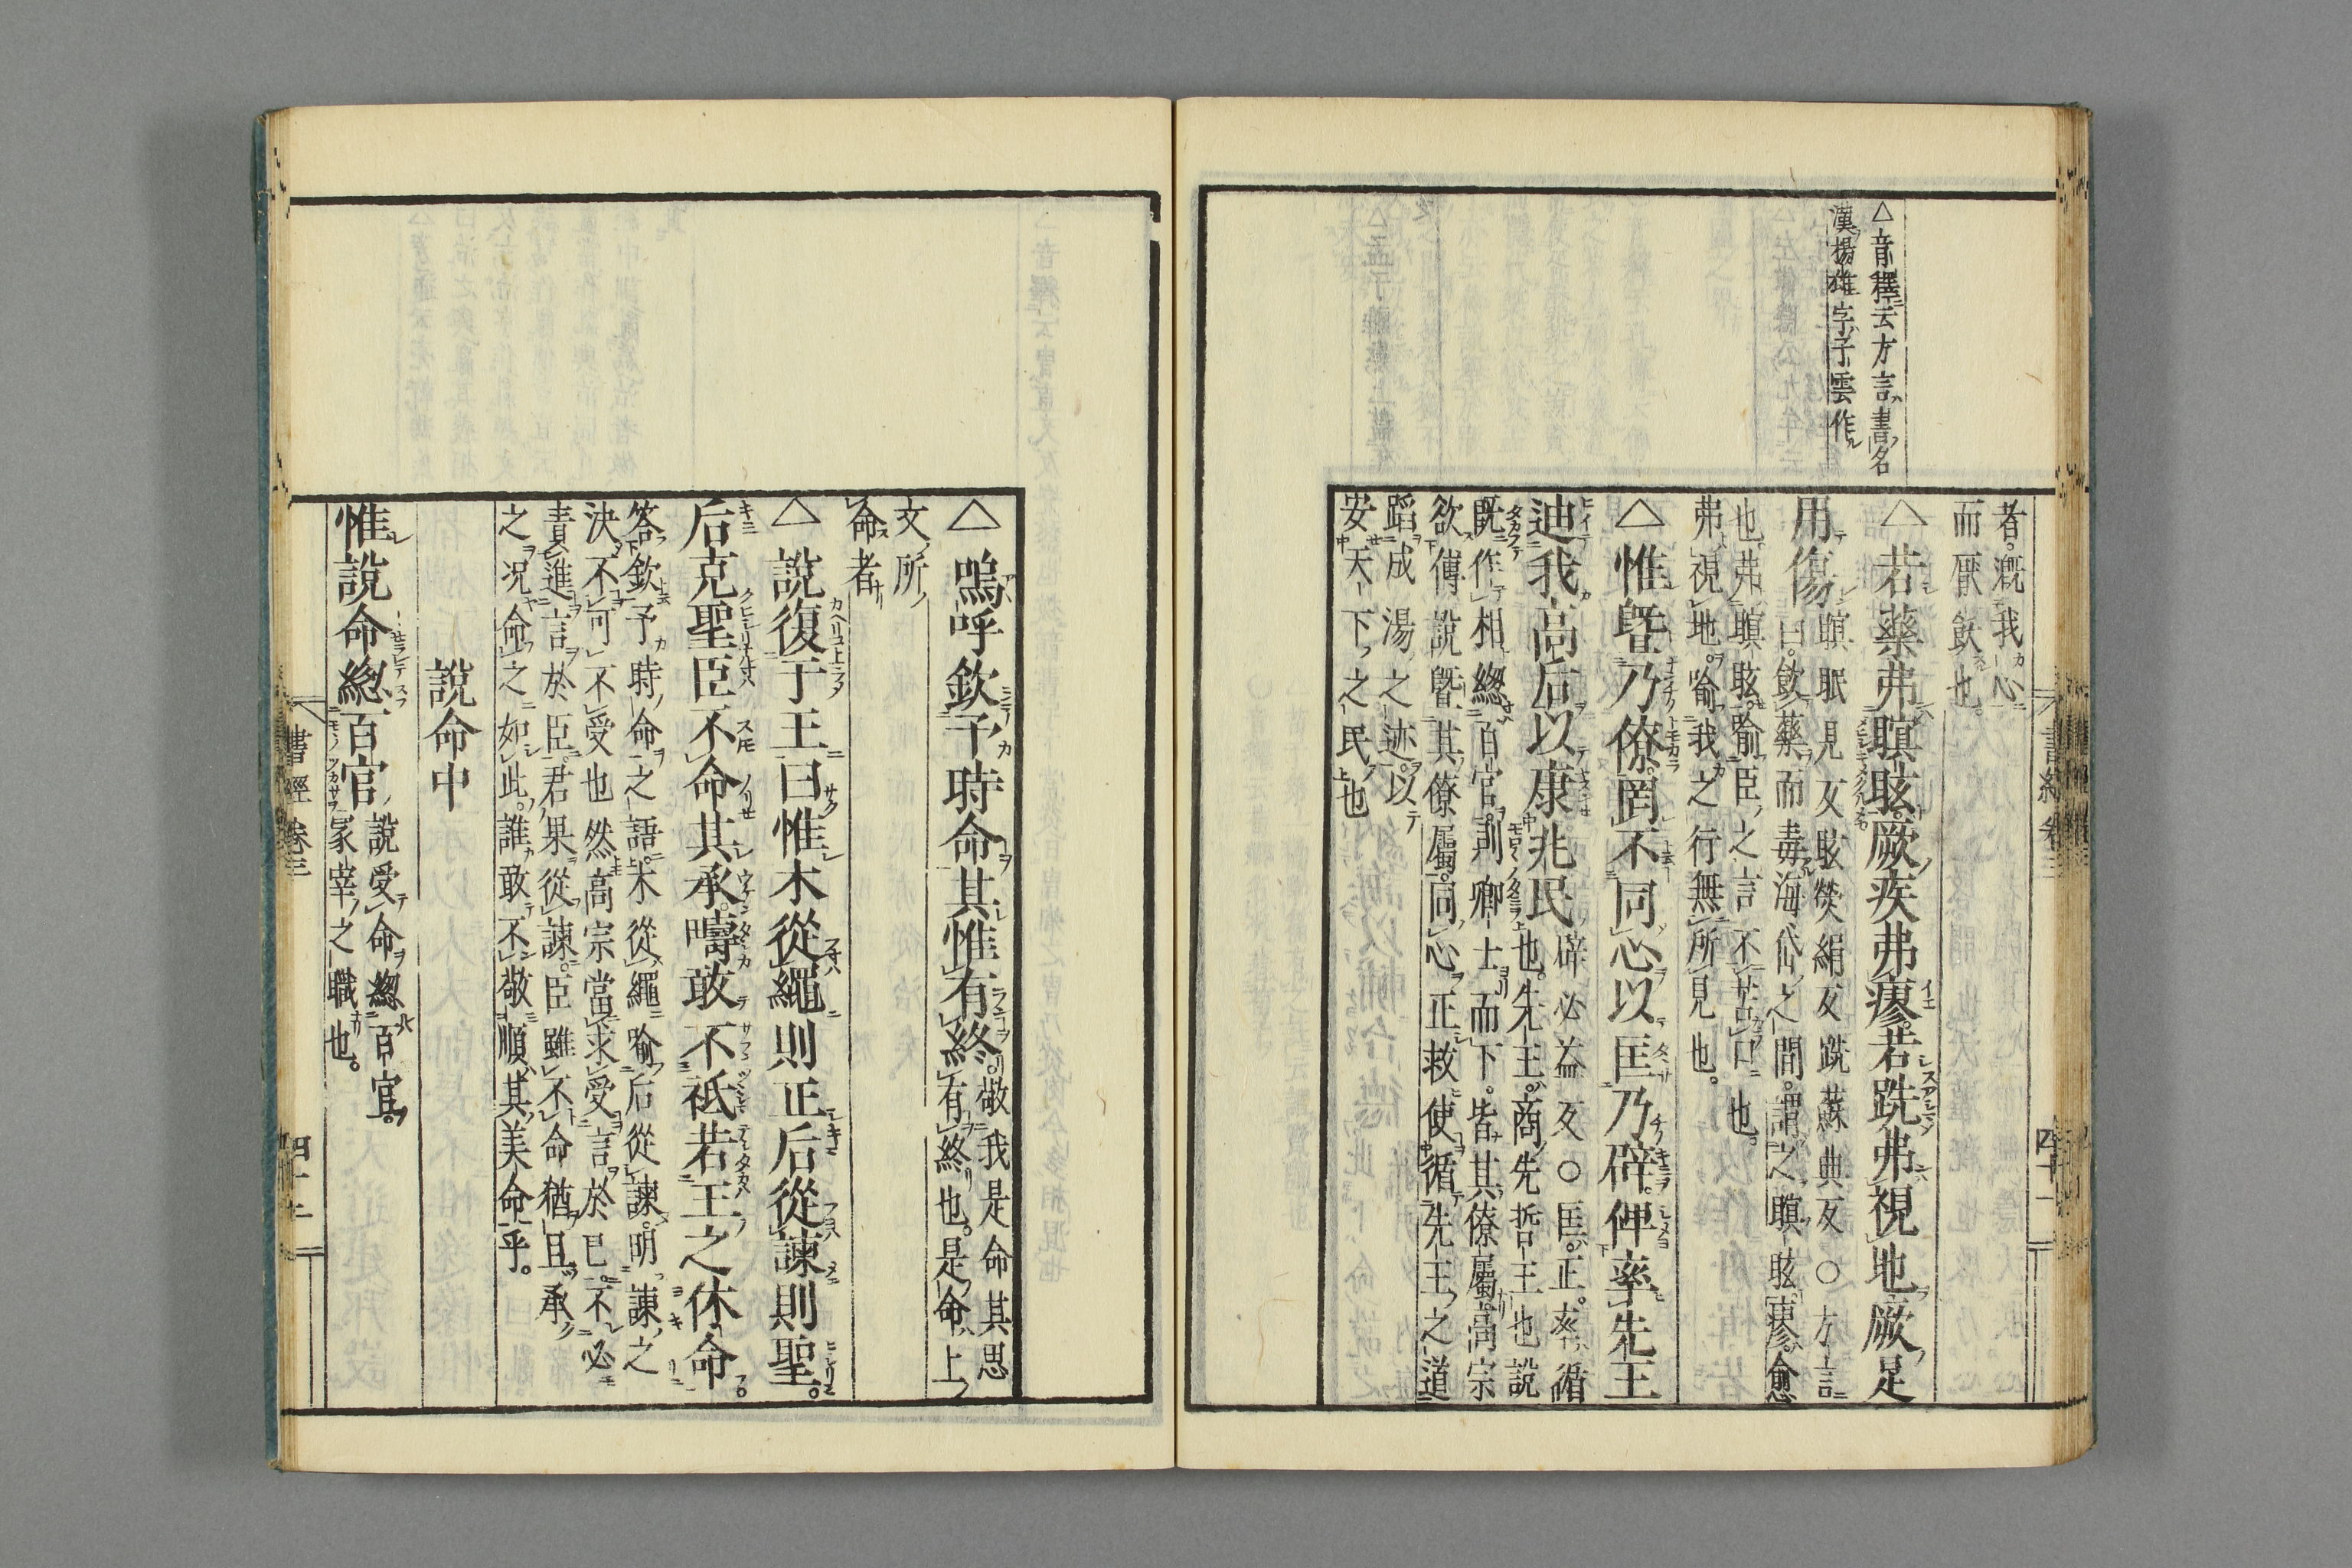 △音釋云方言書名
漢揚雄字子雲作
者。漑我心
而厭飫也。
△若藥弗瞑眩。厥疾弗瘳。若跣弗視地。厥足
用傷
瞑眠見反眩熒絹反跣蘇典反○方言
曰。飲藥而毒海岱之間。謂之瞑眩。瘳愈
也。弗瞑眩。喻臣之言不苦口也。
弗視地。喻我之行無所見也。
△惟曁乃僚。罔不同心。以匡乃辟。俾率先王
迪我高后。以康兆民
辟必益反○匡。正。率。循
也。先王。商先哲王也說
既作相。緫百官。則卿士而下。皆其僚屬。高宗
欲傅說曁其僚屬。同心正救。使循先王之道
蹈成湯之迹。以
安天下之民也
書經卷三
四十一
△嗚呼欽予時命。其惟有終。
敬我是命其思
有終也。是命上
文所
命者
△說復于王曰惟木從繩則正后從諫則聖。
后克聖臣不命其承。疇敢不祗若王之休命。
答欽予時命之語。木從繩喻后從諫。明諫之
決不可不受也然高宗當求受言於已。不必
責進言於臣。君果從諫。臣雖不命猶且承
之。况命之如此。誰敢不敬順其美命乎。
說命中
惟說命緫百官
說受命緫百官。
冢宰之職也。
書經卷三
四十二